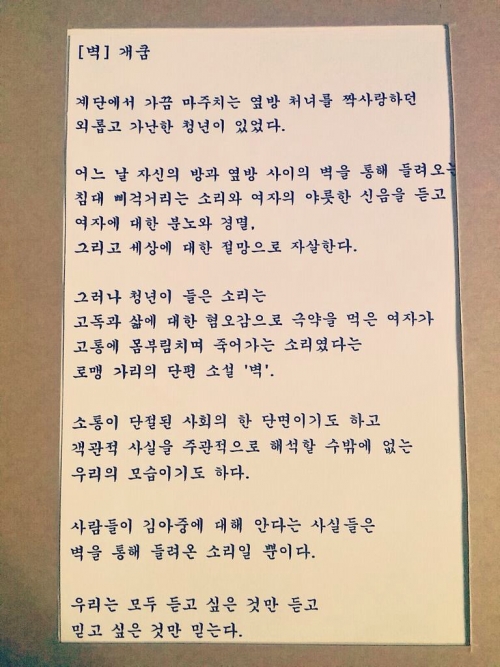 [벽] 개쿰
계단에서 가끔 마주치는 옆방 처녀를 짝사랑하던
외롭고 가난한 청년이 있었다.
어느 날 자신의 방과 옆방 사이의 벽을 통해 들려오는
침대 삐걱거리는 소리와 여자의 야릇한 신음을 듣고
여자에 대한 분노와 경멸,
그리고 세상에 대한 절망으로 자살한다.
그러나 청년이 들은 소리는
고독과 삶에 대한 혐오감으로 극약을 먹은 여자가
고통에 몸부림치며 죽어가는 소리였다는
로맹 가리의 단편 소설 '벽'.
소통이 단절된 사회의 한 단면이기도 하고
객관적 사실을 주관적으로 해석할 수밖에 없는
우리의 모습이기도 하다.
사람들이 김아중에 대해 안다는 사실들은
벽을 통해 들려온 소리일 뿐이다.
우리는 모두 듣고 싶은 것만 듣고
믿고 싶은 것만 믿는다.